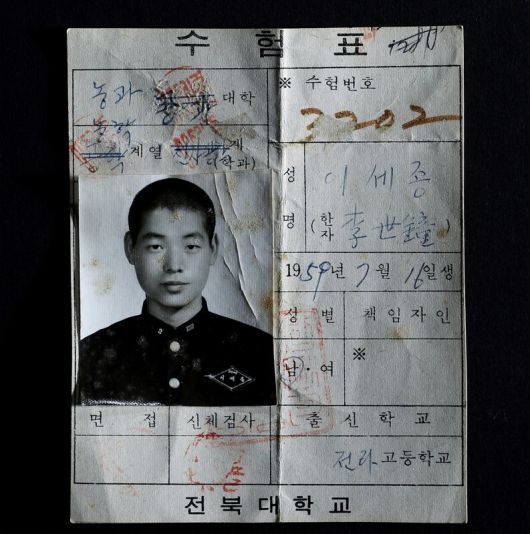 수 험 표
농과 대학
농학 계열 계(학과)
※ 수험번호
3202
성 명
이세종
(한자 李世鐘)
1959년 7월 16일생
성 별
책 임 자 인
남 · 여
※
면 접
신체검사
출 신 학 교
전라고등학교
전북대학교